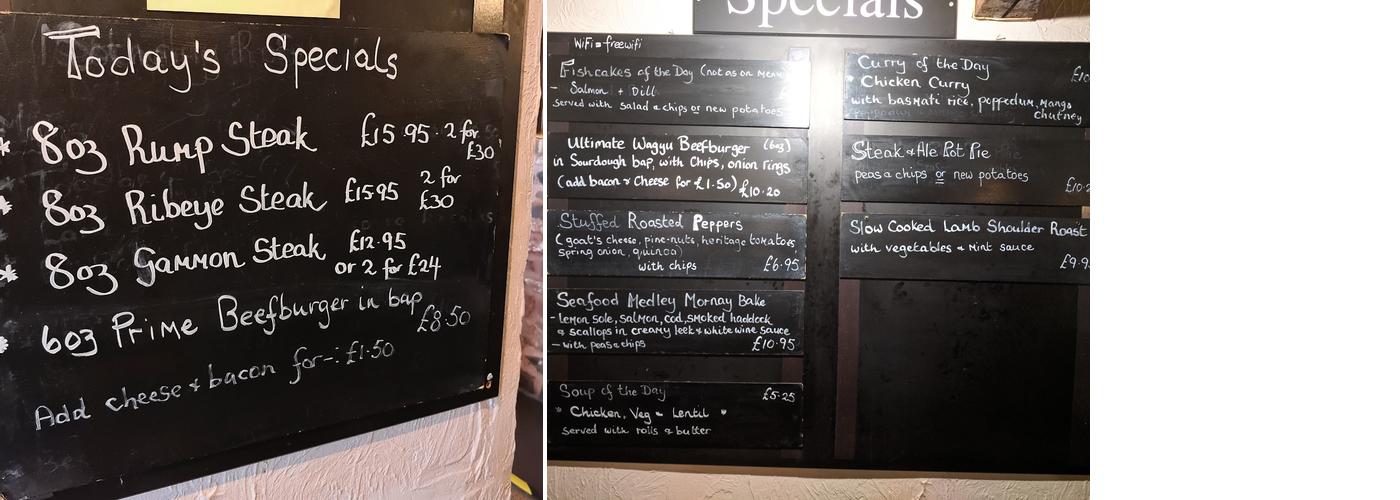 Today's Specials
* 8oz Rump Steak £15.95. 2 for £30
* 8oz Ribeye Steak £15.95 2 for £30
* 8oz Gammon Steak £12.95 or 2 for £24
* 6oz Prime Beefburger in bap £8.50
Add cheese & bacon for-: £1.50
Specials
WiFi = freewifi
Fishcakes of the Day (not as on menu
- Salmon + Dill
served with salad & chips or new potatoes
Ultimate Wagyu Beefburger (6oz)
in Sourdough bap, with Chips, onion rings
(add bacon & Cheese for £1.50) £10.20
Stuffed Roasted Peppers
(goat's cheese, pine-nuts, heritage tomatoes
spring onion, quinoa)
with chips £6.95
Seafood Medley Mornay Bake
- lemon sole, salmon, cod, smoked haddock
& scallops in creamy leek & white wine sauce
- with peas & chips £10.95
Soup of the Day £5.25
* Chicken, Veg & Lentil *
served with rolls & butter
Curry of the Day £10
* Chicken Curry
with basmati rice, poppedum, Mango
chutney
Steak & Ale Pot Pie
peas & chips or new potatoes
£10.2
Slow Cooked Lamb Shoulder Roast
with vegetables & Mint sauce
£9.9